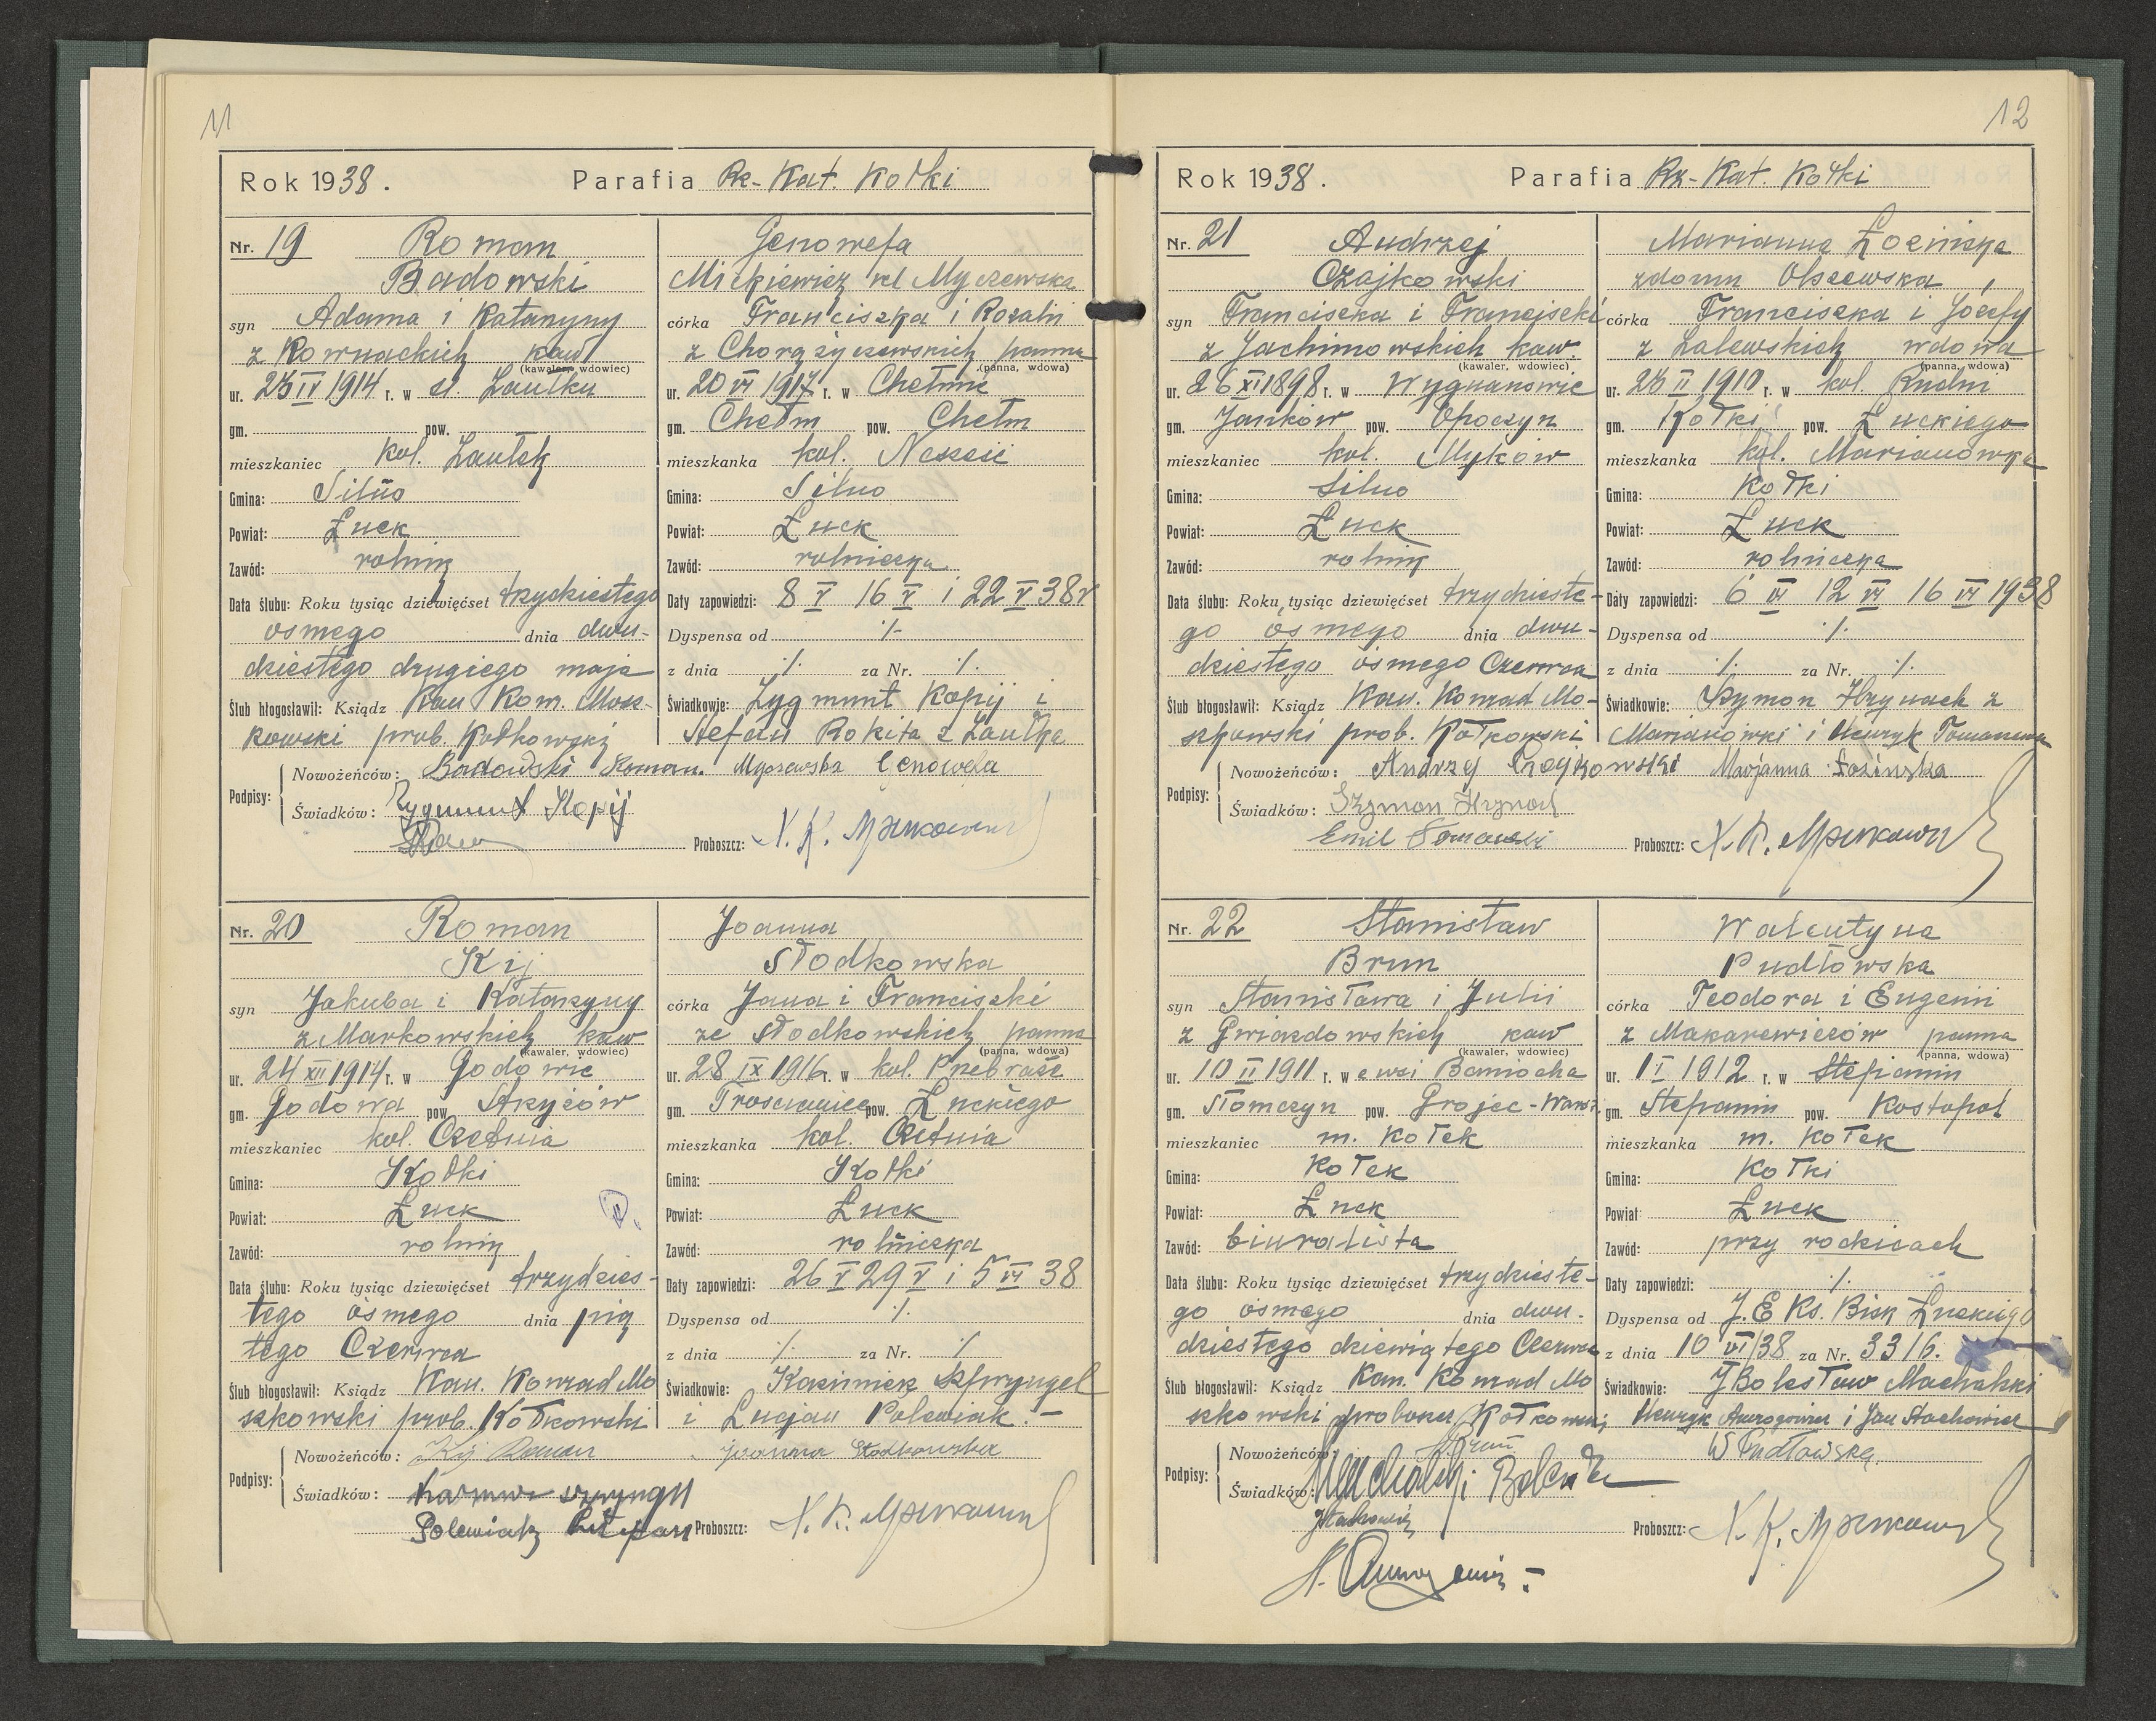 11
Rok 1938. Parafia Rz-Kat. Kołki
Nr. 19 Roman
Badowski
syn Adama i Katarzyny
z Kownackich kaw
(kawaler, wdowiec)
ur. IV 1914 r. w
gm. pow.
mieszkaniec Kol.
Gmina: Silno
Powiat: Łuck
Zawód: rolnik
Data ślubu: Roku tysiąc dziewięćset trzydziestego
osmego dnia dwu-
dziestego drugiego maja
Ślub błogosławił: Ksiądz Kan Kon. Mosz-
kowski prob. Kołkowski
Genowefa
Mickiewicz vel Myczewska
córka Franciszka i Rozalii
z panna
(panna, wdowa)
ur. 20 VI 1917 r. w Chełmie
gm. Chełm pow. Chełm
mieszkanka kol.
Gmina: Silno
Powiat: Łuck
Zawód: rolniczka
Daty zapowiedzi: 8 V 16 V i 22 V 38 r
Dyspensa od ·/·
z dnia ·/· za Nr. ·/·
Świadkowie: Zygmunt Kopij i
Stefan Rokita z
Podpisy: Nowożeńców: Badowski Roman. Myczewska Genowefa
Świadków: Zygmunt Kopij
Proboszcz: X. K. Moszkowski
Nr. 20 Roman
Kij
syn Jakuba i Katarzyny
z Markowskich kaw
(kawaler, wdowiec)
ur. 24 XII 1914 r. w Godowie
gm. Godowa pow. Strzyżów
mieszkaniec kol. Czetnia
Gmina: Kołki
Powiat: Łuck
Zawód: rolnik
Data ślubu: Roku tysiąc dziewięćset trzydzies-
tego osmego dnia pią
tego Czerwca
Ślub błogosławił: Ksiądz Kan. Konrad Mo
szkowski prob. Kołkowski
Joanna
Słodkowska
córka Jana i Franciszki
ze Słodkowskich panna
(panna, wdowa)
ur. 28 IX 1916 r. w kol. Przebraże
gm. pow. Łuckiego
mieszkanka kol. Czetnia
Gmina: Kołki
Powiat: Łuck
Zawód: rolniczka
Daty zapowiedzi: 26 V 29 V i 5 VI 38
Dyspensa od ·/·
z dnia ·/· za Nr. ·/·
Świadkowie: Kazimierz Szpryngel
i Lucjan Polewiak.-
Podpisy: Nowożeńców: Kij Roman Joanna Słodkowska
Świadków:
Polewiak
Proboszcz: X. K. Moszkowski
12
Rok 1938. Parafia Rz-Kat. Kołki
Nr. 21 Andrzej
Czajkowski
syn Franciszka i Franciszki
z Jachimowskich kaw.
(kawaler, wdowiec)
ur. 26 XI 1898 r. w Wygnanowie
gm. Janków pow. Opoczyn
mieszkaniec kol. Myków
Gmina: Silno
Powiat: Łuck
Zawód: rolnik
Data ślubu: Roku tysiąc dziewięćset trzydzieste-
go ósmego dnia dwu-
dziestego ósmego Czerwca
Ślub błogosławił: Ksiądz Kan. Konrad Mo-
szkowski prob. Kołkowski
Marianna Łozińska
zdomu Olszewska
córka Franciszka i Józefy
z Zalewskich wdowa
(panna, wdowa)
ur. II 1910 r. w kol. Rudni
gm. Kołki pow. Łuckiego
mieszkanka kol. Marianówka
Gmina: Kołki
Powiat: Łuck
Zawód: rolniczka
Daty zapowiedzi: 6 VI 12 VI 16 VI 1938
Dyspensa od ·/·
z dnia ·/· za Nr. ·/·
Świadkowie: Szymon Hrynach z
Marianówki i Henryk
Podpisy: Nowożeńców: Andrzej Czajkowski Marjanna Łozinska
Świadków: Szymon
Emil
Proboszcz: X. K. Moszkowski
Nr. 22 Stanisław
Brun
syn Stanisława i Julii
z Gwiazdowskich kaw
(kawaler, wdowiec)
ur. 10 II 1911 r. w wsi Baniocha
gm. Słomczyn pow. Grojec-Warsz.
mieszkaniec m. Kołek
Gmina: Kołek
Powiat: Łuck
Zawód: biuralista
Data ślubu: Roku tysiąc dziewięćset trzydzieste-
go ósmego dnia dwu-
dziestego dziewiątego Czerwca
Ślub błogosławił: Ksiądz Kan. Konrad Mo
szkowski proboszcz Kołkowski
Walentyna
Pudłowska
córka Teodora i Eugenii
z Makarewiczów panna
(panna, wdowa)
ur. 1 I 1912 r. w Stepanin
gm. Stepanin pow. Kostopol
mieszkanka m. Kołek
Gmina: Kołki
Powiat Łuck
Zawód: przy rodzicach
Daty zapowiedzi: ·/·
Dyspensa od J. E Ks. Bisk Łuckiego
z dnia 10 VI/38 za Nr. 3316.
Świadkowie: Bolesław Machalski
Henryk i Jan Stachowicz
Podpisy: Nowożeńców: Brun W Pudłowska.
Świadków: Machalski
JStachowicz
Proboszcz: X. K. Moszkowski